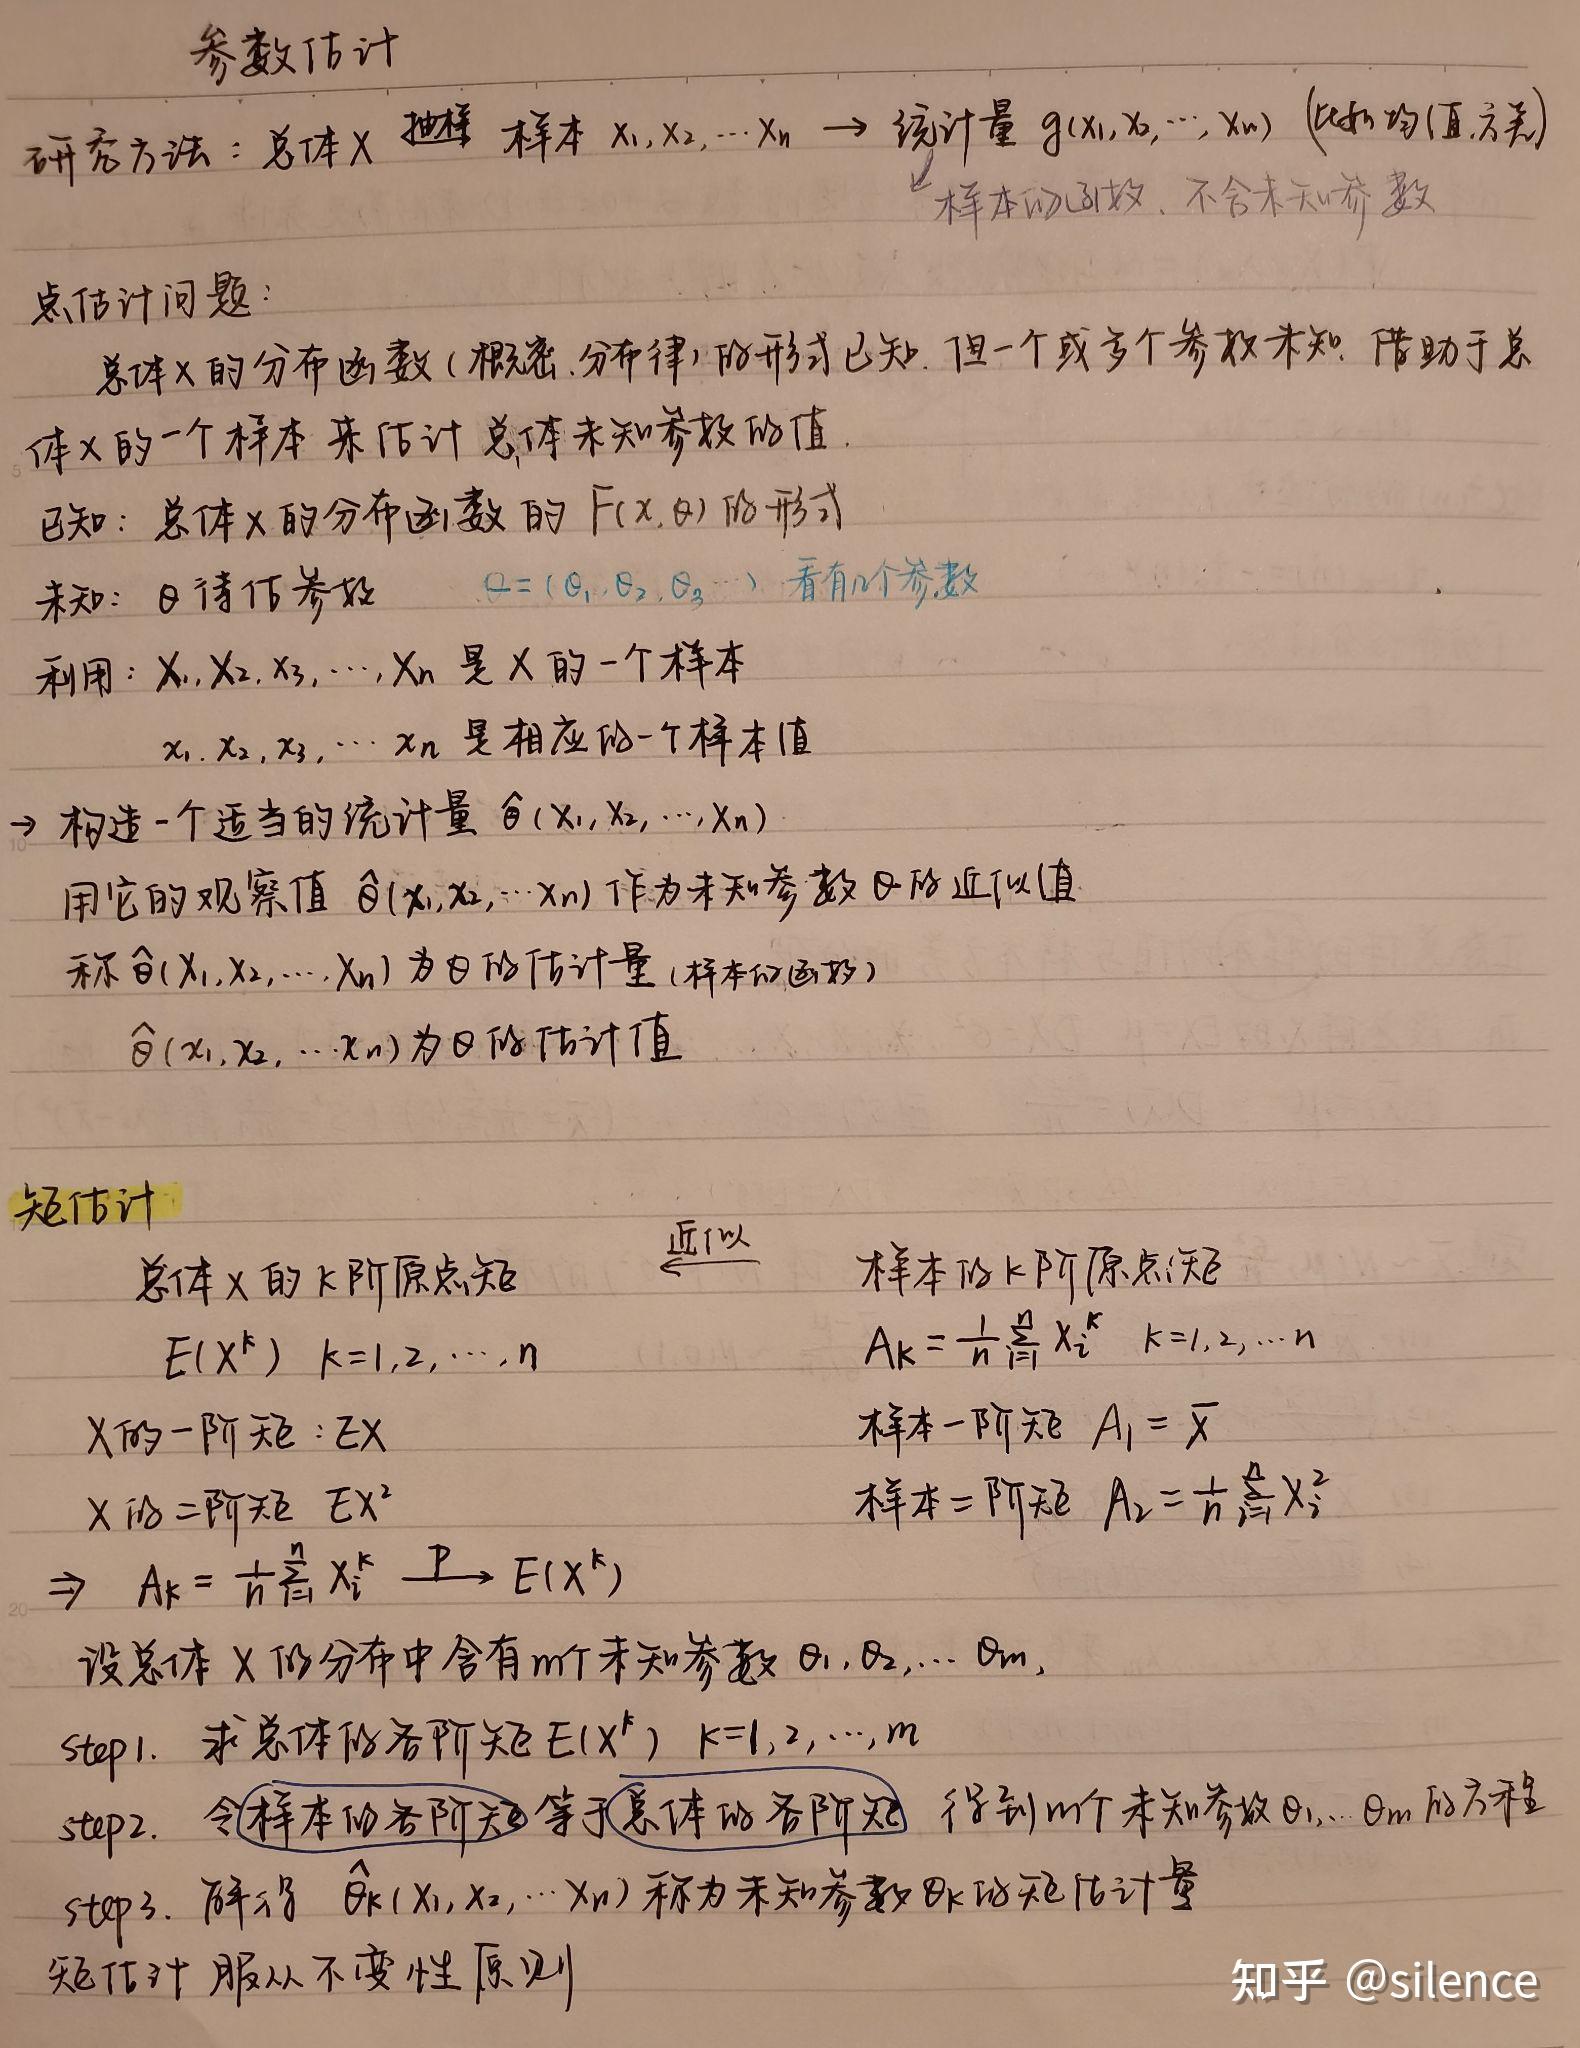 参数估计
研究方法：总体X 抽样 样本 X₁, X₂, … Xₙ → 统计量 g(X₁, X₂, …, Xₙ) (比如均值.方差)
样本的函数、不含未知参数
点估计问题：
总体X的分布函数(概密.分布律)的形式已知. 但一个或多个参数未知. 借助于总
体X的一个样本来估计总体未知参数的值.
已知：总体X的分布函数的 F(x, θ) 的形式
未知：θ 待估参数 θ=(θ₁, θ₂, θ₃ …) 看有几个参数
利用：X₁, X₂, X₃, …, Xₙ 是X的一个样本
x₁, x₂, x₃, … xₙ 是相应的一个样本值
→ 构造一个适当的统计量 θ̂(X₁, X₂, …, Xₙ)
用它的观察值 θ̂(x₁, x₂, … xₙ) 作为未知参数θ的近似值
称 θ̂(X₁, X₂, …, Xₙ) 为θ的估计量(样本的函数)
θ̂(x₁, x₂, … xₙ) 为θ的估计值
矩估计
总体X的K阶原点矩 近似 ← 样本的K阶原点矩
E(Xᵏ) k=1,2,…,n Aₖ = 1/n Σⁿᵢ₌₁ Xᵢᵏ k=1,2,…n
X的一阶矩：EX 样本一阶矩 A₁ = X̄
X的二阶矩 EX² 样本二阶矩 A₂ = 1/n Σⁿᵢ₌₁ Xᵢ²
⇒ Aₖ = 1/n Σⁿᵢ₌₁ Xᵢᵏ —P→ E(Xᵏ)
设总体X的分布中含有m个未知参数 θ₁, θ₂, … θm,
step1. 求总体的各阶矩 E(Xᵏ) k=1,2,…,m
step2. 令样本的各阶矩等于总体的各阶矩 得到m个未知参数θ₁,…θm的方程
step3. 解得 θ̂ₖ(X₁, X₂, … Xₙ) 称为未知参数θₖ的矩估计量
矩估计服从不变性原则
知乎 @silence